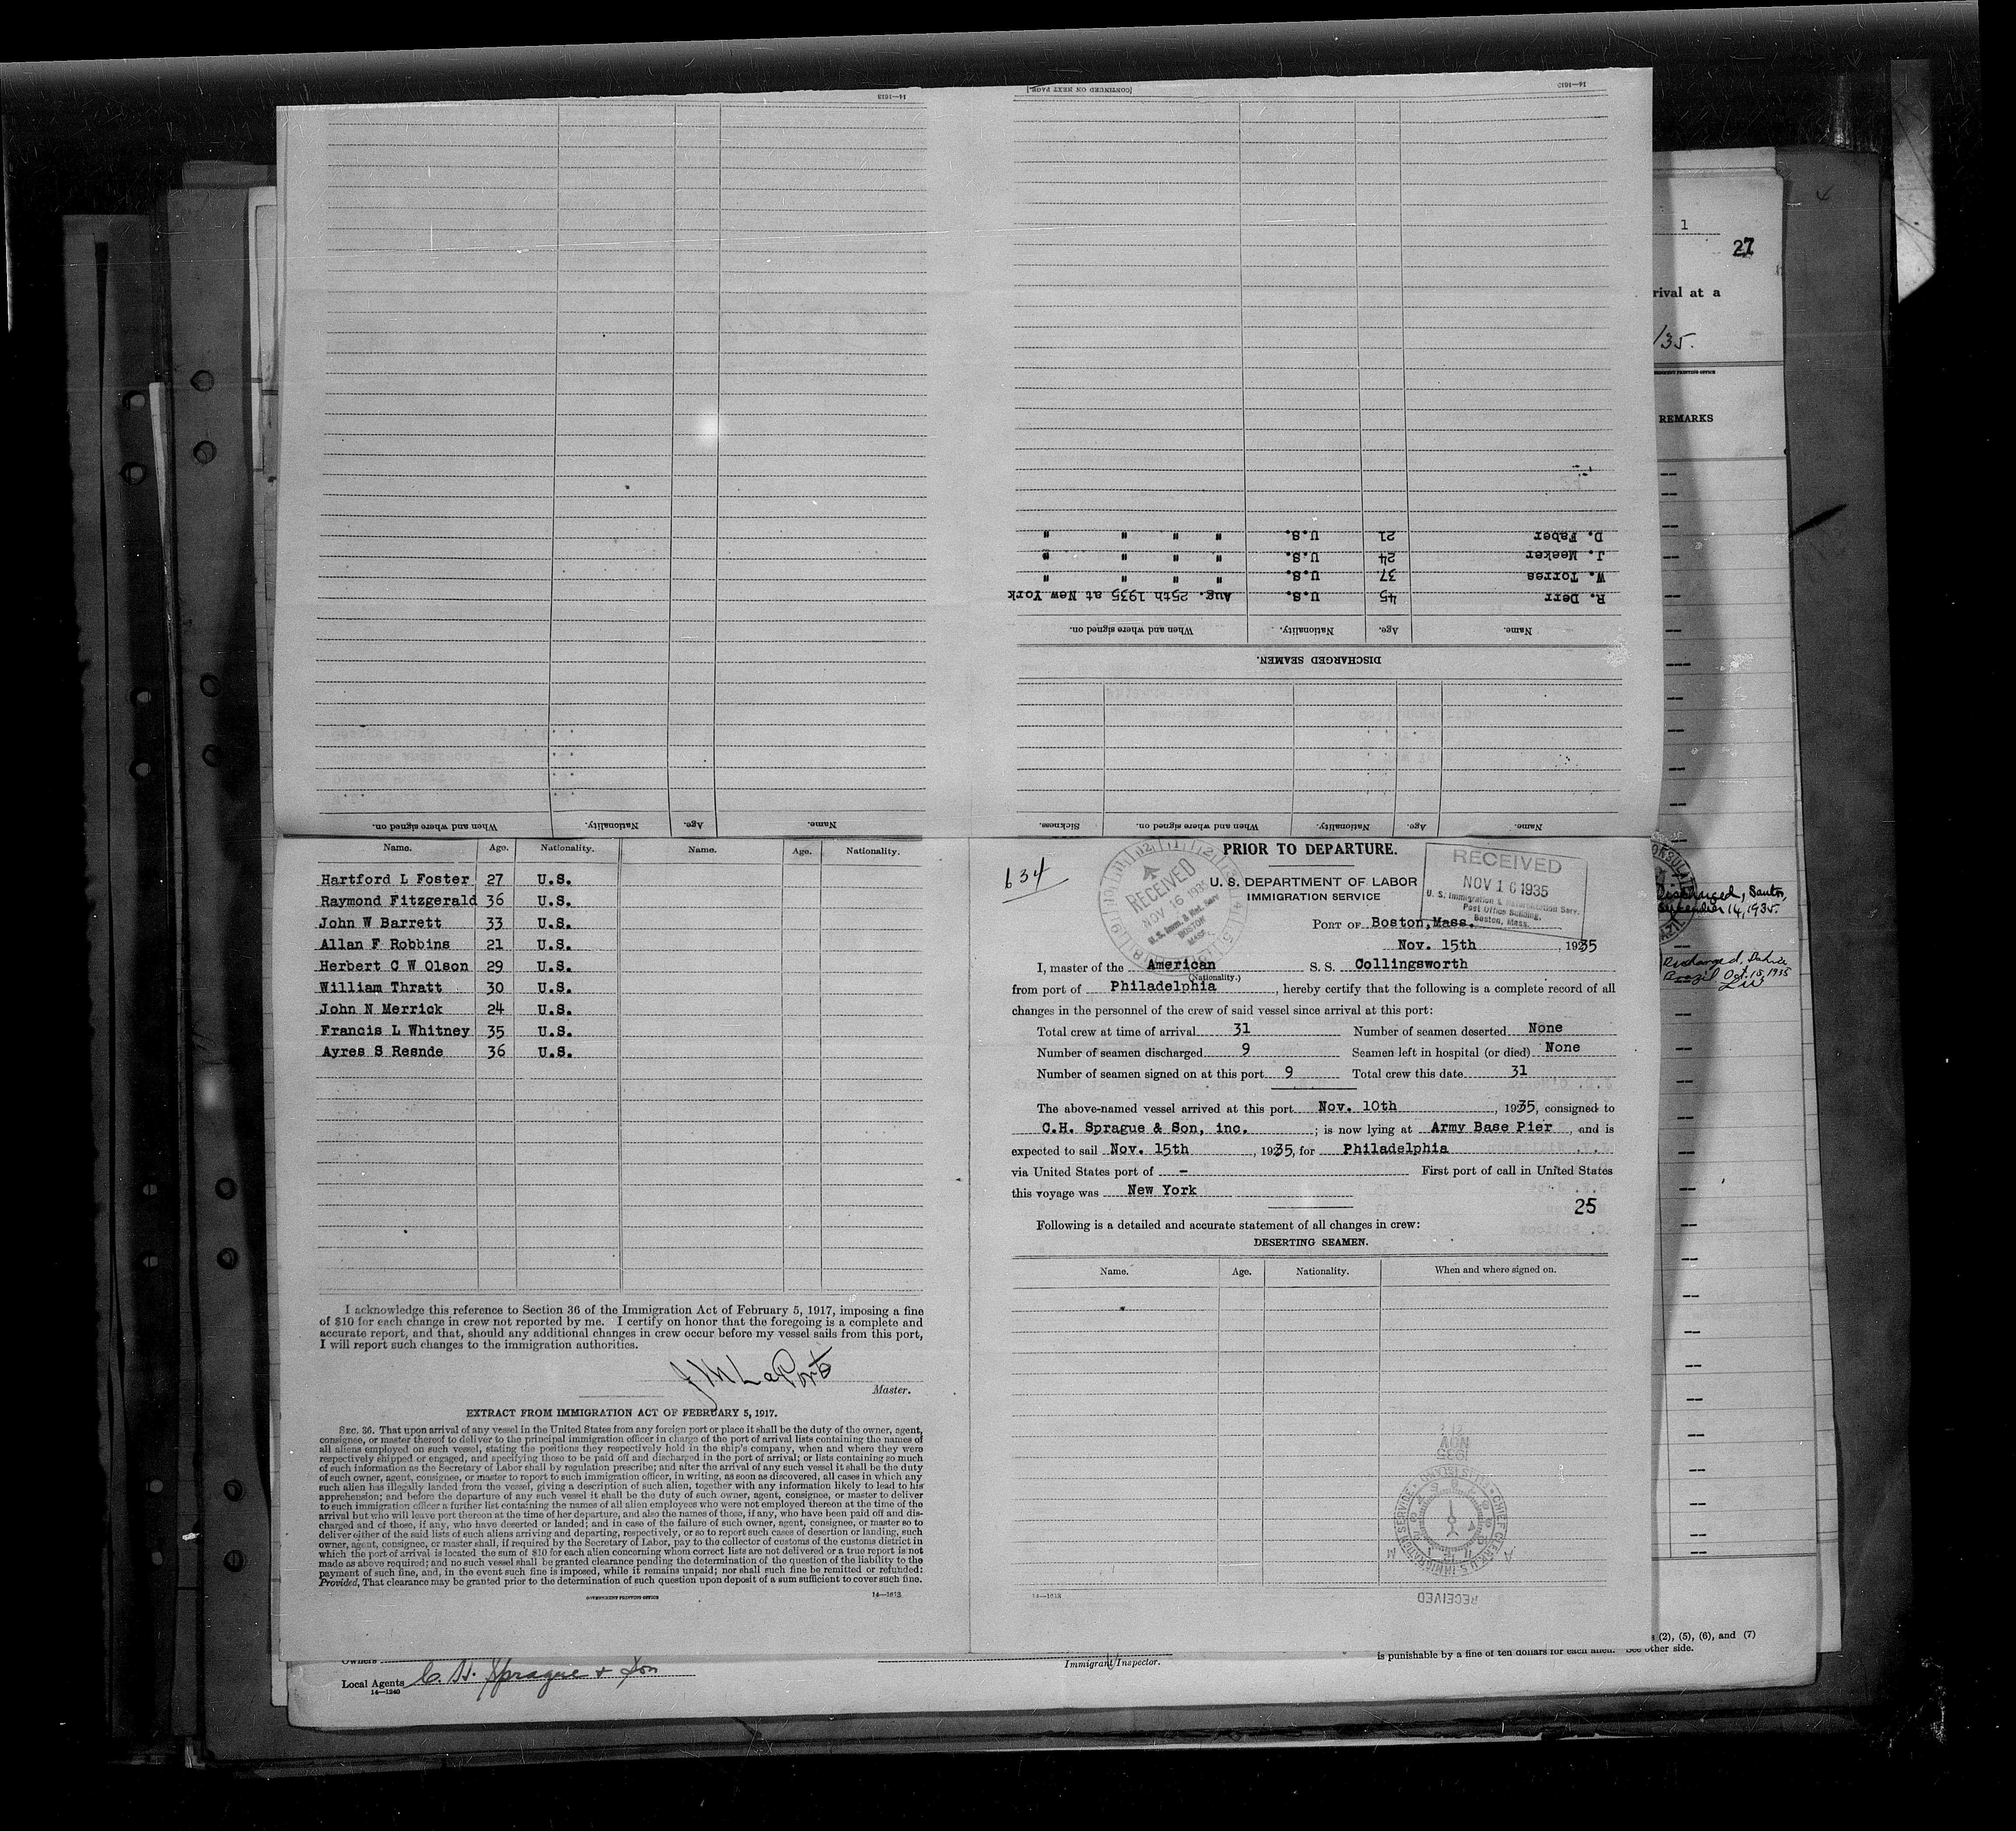 PRIOR TO DEPARTURE.
634
RECEIVED
NOV 16 1935
U.S. Imm. & Nat. Serv
BOSTON
MASS.
U. S. DEPARTMENT OF LABOR
IMMIGRATION SERVICE
RECEIVED
NOV 16 1935
U. S. Immigration & Naturalization Serv.
Post Office Building,
Boston, Mass.
PORT OF Boston, Mass.
Nov. 15th, 1935
I, master of the American S. S. Collingsworth
(Nationality.)
from port of Philadelphia, hereby certify that the following is a complete record of all
changes in the personnel of the crew of said vessel since arrival at this port:
Total crew at time of arrival 31 Number of seamen deserted None
Number of seamen discharged 9 Seamen left in hospital (or died) None
Number of seamen signed on at this port 9 Total crew this date 31
The above-named vessel arrived at this port Nov. 10th, 1935, consigned to
C.H. Sprague & Son, inc. ; is now lying at Army Base Pier, and is
expected to sail Nov. 15th, 1935, for Philadelphia
via United States port of – First port of call in United States
this voyage was New York
25
Following is a detailed and accurate statement of all changes in crew:
DESERTING SEAMEN.
Name. Age. Nationality. When and where signed on.
RECEIVED
CHIEF CLERK U.S. IMMIGRATION SERVICE
NOV
1935
14—1613
Name. Age. Nationality. When and where signed on. Sickness.
DISCHARGED SEAMEN.
Name. Age. Nationality. When and where signed on.
R. Derr 45 U.S. Aug. 25th 1935 at New York
W. Torres 37 U.S. " " " "
J. Meeker 24 U.S. " " " "
D. Faber 21 U.S. " " " "
14—1613 [CONTINUED ON NEXT PAGE.]
Name. Age. Nationality. When and where signed on.
14—1613
Name. Age. Nationality. Name. Age. Nationality.
Hartford L Foster 27 U.S.
Raymond Fitzgerald 36 U.S.
John W Barrett 33 U.S.
Allan F Robbins 21 U.S.
Herbert C W Olson 29 U.S.
William Thratt 30 U.S.
John N Merrick 24 U.S.
Francis L Whitney 35 U.S.
Ayres S Resnde 36 U.S.
I acknowledge this reference to Section 36 of the Immigration Act of February 5, 1917, imposing a fine
of $10 for each change in crew not reported by me. I certify on honor that the foregoing is a complete and
accurate report, and that, should any additional changes in crew occur before my vessel sails from this port,
I will report such changes to the immigration authorities.
J M LaPorte
Master.
EXTRACT FROM IMMIGRATION ACT OF FEBRUARY 5, 1917.
SEC. 36. That upon arrival of any vessel in the United States from any foreign port or place it shall be the duty of the owner, agent,
consignee, or master thereof to deliver to the principal immigration officer in charge of the port of arrival lists containing the names of
all aliens employed on such vessel, stating the positions they respectively hold in the ship's company, when and where they were
respectively shipped or engaged, and specifying those to be paid off and discharged in the port of arrival; or lists containing so much
of such information as the Secretary of Labor shall by regulation prescribe; and after the arrival of any such vessel it shall be the duty
of such owner, agent, consignee, or master to report to such immigration officer, in writing, as soon as discovered, all cases in which any
such alien has illegally landed from the vessel, giving a description of such alien, together with any information likely to lead to his
apprehension; and before the departure of any such vessel it shall be the duty of such owner, agent, consignee, or master to deliver
to such immigration officer a further list containing the names of all alien employees who were not employed thereon at the time of the
arrival but who will leave port thereon at the time of her departure, and also the names of those, if any, who have been paid off and dis-
charged and of those, if any, who have deserted or landed; and in case of the failure of such owner, agent, consignee, or master so to
deliver either of the said lists of such aliens arriving and departing, respectively, or so to report such cases of desertion or landing, such
owner, agent, consignee, or master shall, if required by the Secretary of Labor, pay to the collector of customs of the customs district in
which the port of arrival is located the sum of $10 for each alien concerning whom correct lists are not delivered or a true report is not
made as above required; and no such vessel shall be granted clearance pending the determination of the question of the liability to the
payment of such fine, and, in the event such fine is imposed, while it remains unpaid; nor shall such fine be remitted or refunded:
Provided, That clearance may be granted prior to the determination of such question upon deposit of a sum sufficient to cover such fine.
GOVERNMENT PRINTING OFFICE 14—1613
1
27
rival at a
/35.
REMARKS
Discharged, Santos,
September 14, 1935.
Discharged,
Brazil Oct. 15, 1935
Owners
Local Agents C. H. Sprague & Son
14—1240
Immigrant Inspector.
(2), (5), (6), and (7)
is punishable by a fine of ten dollars for each alien. See other side.